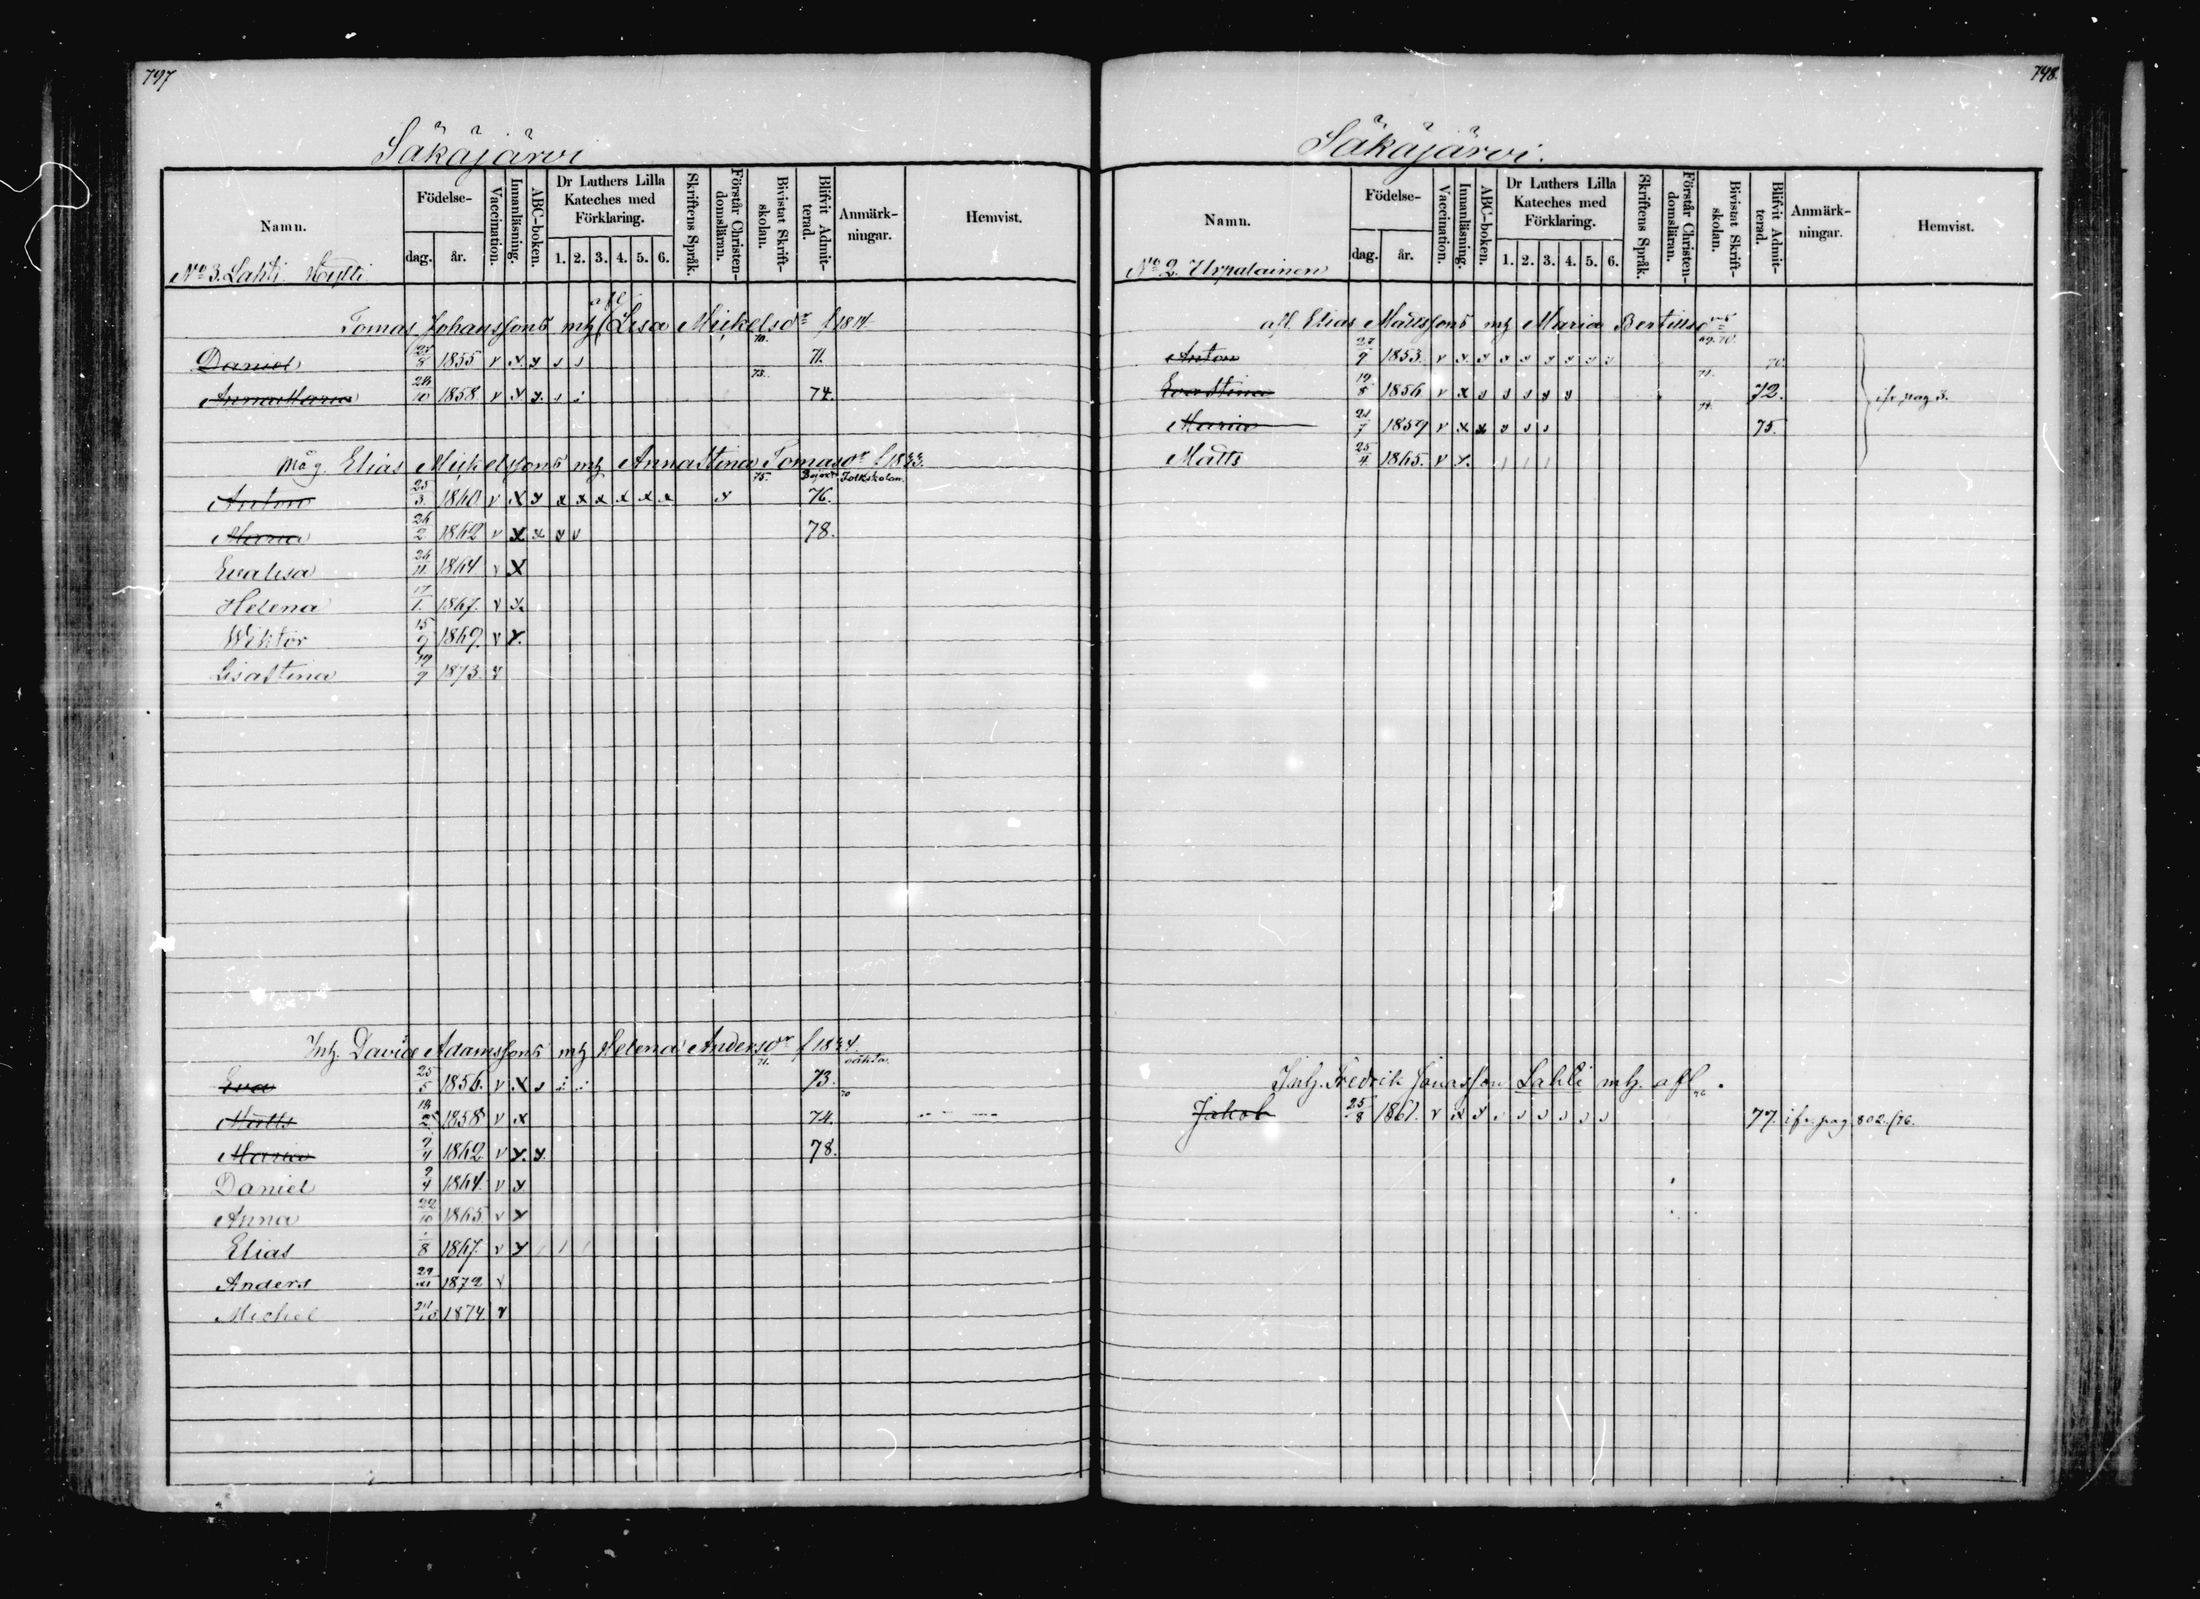 797
Säkäjärvi
Namn. Födelse- dag. år. Vaccination. Innanläsning. ABC-boken. Dr Luthers Lilla Kateches med Förklaring. 1. 2. 3. 4. 5. 6. Skriftens Språk. Förstår Christendomsläran. Bivistat Skriftskolan. Blifvit Admitterad. Anmärkningar. Hemvist.
No 3. Lahti
afl
Tomas Johanssons mh Lisa Mickelsdr f 1814
70.
Daniel 1855 v x y 71.
73.
Anna Maria 24/10 1858 v x y. 74.
Måg. Elias Mickelssons mh Annastina Tomasdr f 1833.
75. Folkskolan.
Anton 25/3 1860 v x y x x x x x x y 76.
Maria 26/2 1862 v x x y v 78.
Evalisa 24/11 1864 v x
Helena 17/1. 1867. v y.
Wiktor 15/9 1869. v y.
Lisastina 19/9 1873. v
Inh. David Adamssons mh Helena Andersdr f 1834.
71. oäkta.
Eva 25/5 1856. v x 73.
70
Matts 1858 v x 74.
Maria 9/4 1862 v y. y. 78.
Daniel 9/4 1864. v y
Anna 22/10 1865. v y
Elias 1/8 1867. v y
Anders 29/11 1872 v
Michel 1874. v
798.
Säkäjärvi.
Namn. Födelse- dag. år. Vaccination. Innanläsning. ABC-boken. Dr Luthers Lilla Kateches med Förklaring. 1. 2. 3. 4. 5. 6. Skriftens Språk. Förstår Christendomsläran. Bivistat Skriftskolan. Blifvit Admitterad. Anmärkningar. Hemvist.
No 2. Urpalainen
afl. Elias Mattssons mh Maria Bertilsdr
69. 70.
Anton 27/9 1853. v y. y y y y y y y 70.
71.
Evastina 19/8 1856 v x y y y y y 72. ifr pag 3.
74.
Maria 21/7 1859 v x x 75.
Matts 25/4 1865. v y.
Inh. Fredrik Jonasson Lahti mh. afl.
76
Jakob 25/8 1861. v x y 77. ifr. pag 802. /76.